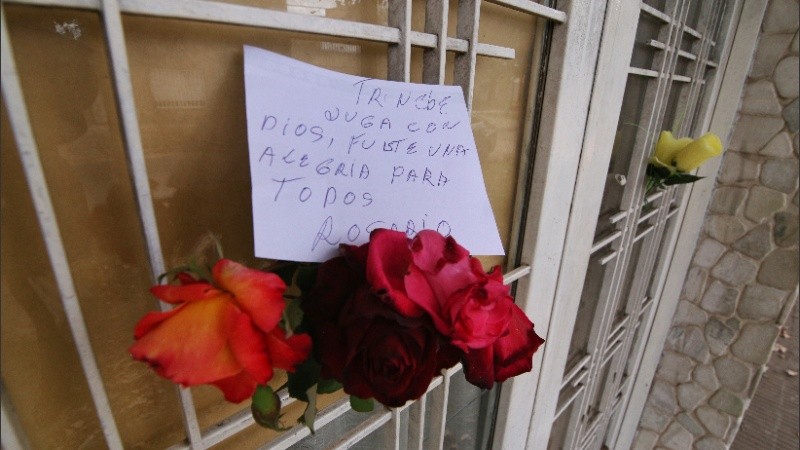 TRINCHE
JUGA CON
DIOS, FUISTE UNA
ALEGRIA PARA
TODOS
ROSARIO